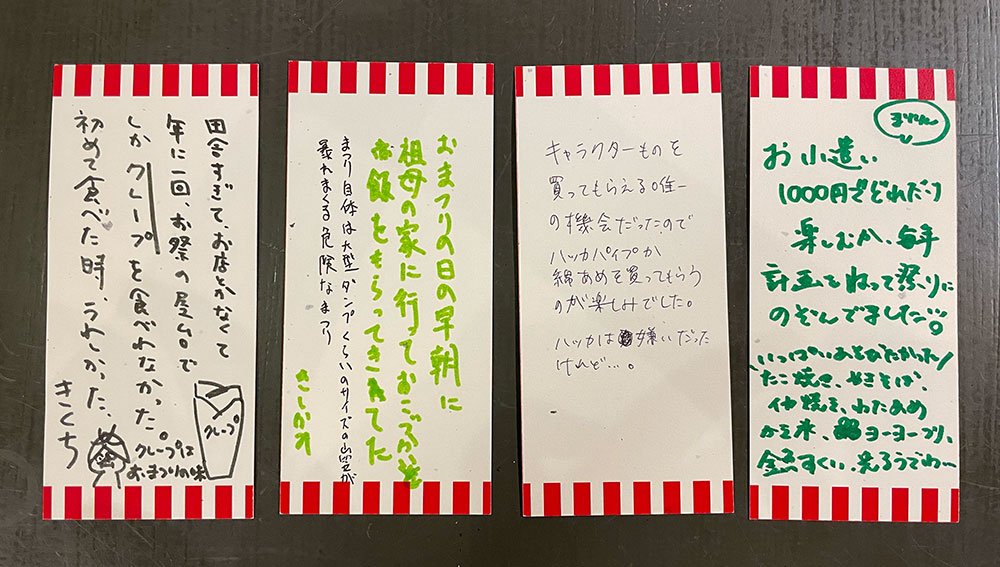 田舎すぎて、お店とかなくて
年に一回、お祭の屋台で
しかクレープを食べれなかった
初めて食べた時、うれしかった、
きくち
クレープは
おまつりの味
クレープ
おまつりの日の早朝に
祖母の家に行っておこづかいと
お飯をもらってきていてた
まつり自体は大型ダンプくらいのサイズの山車が
暴れまくる危険なまつり
キャラクターものを
買ってもらえる唯一
の機会だったので
ハッカパイプか
綿あめを買ってもらう
のが楽しみでした。
ハッカは嫌いだった
けれど…。
お小遣い
1000円でどれだけ
楽しむか、毎年
計画をねって祭りに
のぞんでました
いっぱいあそびたかった
たこ焼き、やきそば、
イカ焼き、わたあめ
かき氷、ヨーヨーつり、
金魚すくい、光るうでわー